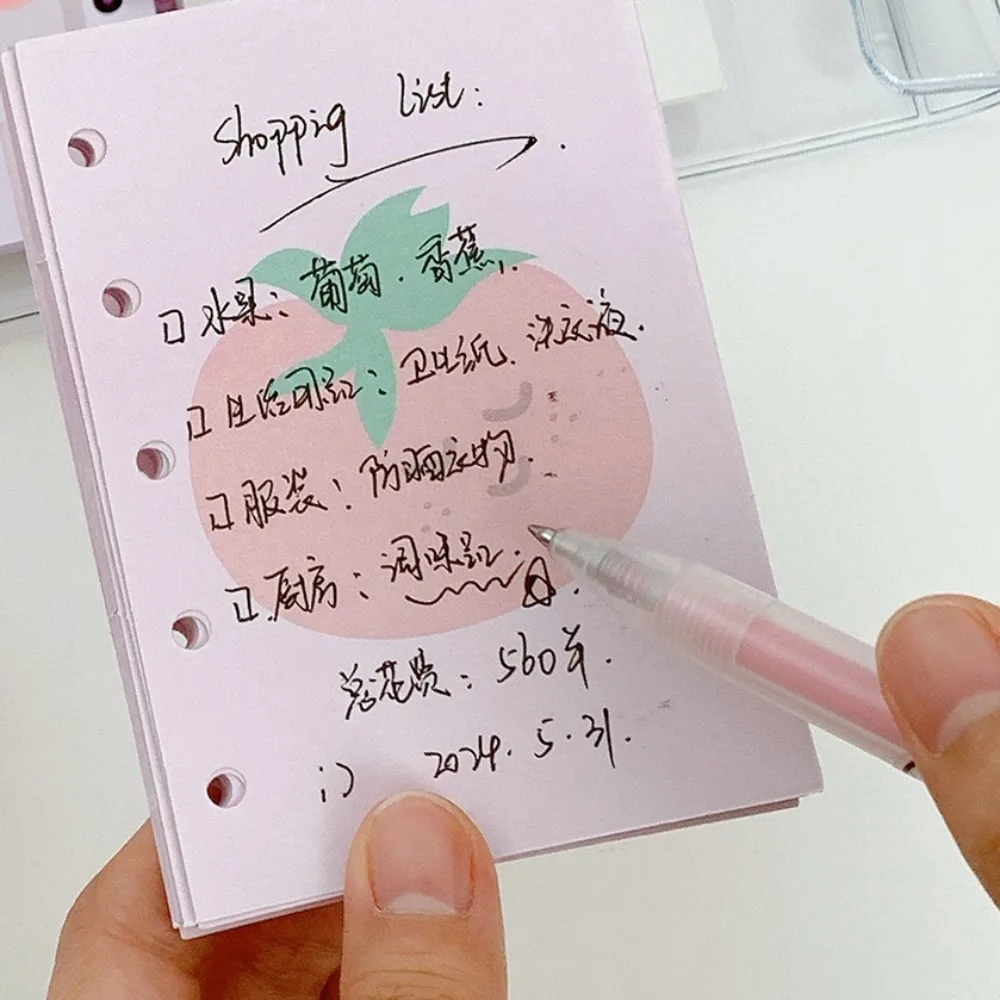 Shoppig List:
水果：葡萄．香蕉．
生活用品：卫生纸．洗衣液．
服装：防晒衣物．
厨房：调味品．
总花费：560羊．
:) 2024．5．31．